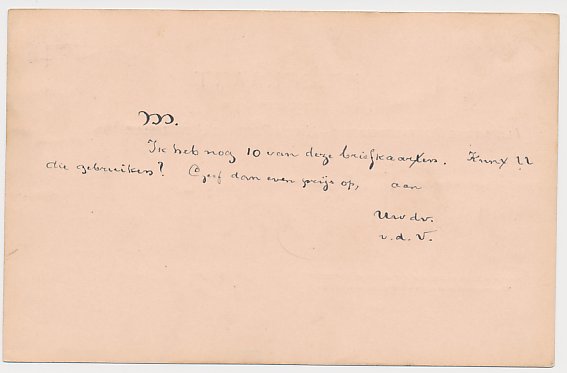 M.
Ik heb nog 10 van deze briefkaarten. Kunt U
die gebruiken? Geef dan even prijs op, aan
Uw dv.
v. d. V.